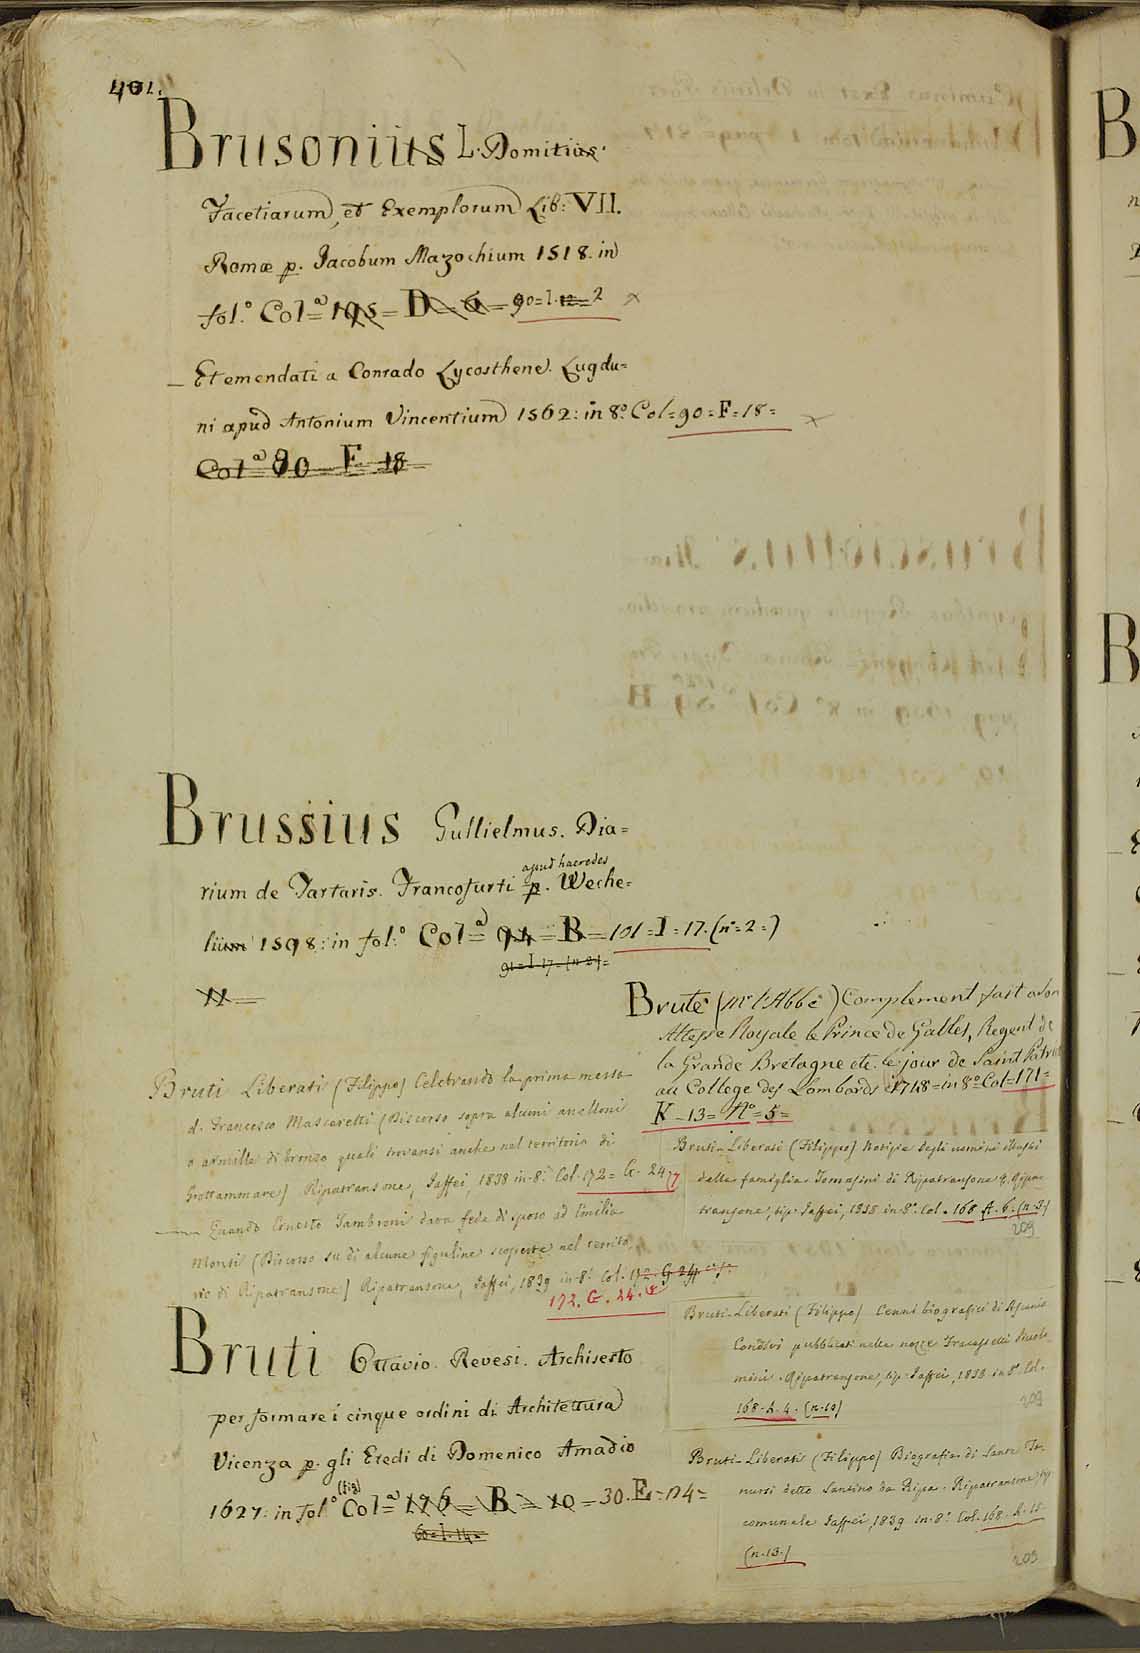 401.
Brusonius L. Domitius.
Facetiarum, et Exemplorum Lib: VII.
Romæ p. Jacobum Mazochium 1518. in
fol.° Col.ª 195 = D = 6 = 90 = I. 12 = 2
_ Et emendati a Conrado Lycosthene. Lugdu=
ni apud Antonium Vincentium 1562: in 8.° Col = 90 = F = 18 =
Col.ª 90 = F = 18
Brussius Gullielmus. Dia=
rium de Tartaris. Francofurti p. apud haeredes Weche=
lium 1598: in fol.° Col.ª 94 = B = 101 = I = 17. (n° = 2 =)
91 = I. 17 = (n. 2) =
11 =
Bruté (M.r l'Abbé) Complement fait a Son
Altesse Royale le Prince de Galles, Regent de
la Grande Bretagne etc. le jour de Saint Patrice
au College des Lombards 1718 = in 8° Col = 171 =
K = 13 = N° = 5 =
Bruti Liberati (Filippo) Celebrando la prima messa
d. Francesco Mascaretti (Discorso sopra alcuni anelloni
o armille di bronzo quali trovansi anche nel territorio di
Grottammare) Ripatransone, Jaffei, 1838 in-8.° Col. 172 = G. 24
_ Quando Ernesto Tambroni dava fede di sposo ad Emilia
Monti (Discorso su di alcune figuline scoperte nel territo
rio di Ripatransone) Ripatransone, Jaffei, 1839 in-8.° Col. 172. G. 24
172. G. 24.
Bruti-Liberati (Filippo) Notizie degli uomini illustri
della famiglia Tomasini di Ripatransone. Ripa-
transone, tip. Jaffei, 1838 in 8.° Col. 168. A. 6. (n. 3.)
209
Bruti-Liberati (Filippo) Cenni biografici di Ascanio
Condivi pubblicati nelle nozze Fracassetti
mini. Ripatransone, tip. Jaffei, 1838 in 8.° Col.
168. h. 4. (n. 10)
209
Bruti-Liberati (Filippo) Biografia di Sante
nursi detto Santino da Ripa. Ripatransone, tip.
comunale Jaffei, 1839 in-8.° Col. 168. h. 15
(n. 13.)
209
Bruti Ottavio. Revesi. Archisesto
per formare i cinque ordini di Architettura
Vicenza p. gli Eredi di Domenico Amadio
1627: in fol.° (fig) Col.ª 176 = B = 10 = 30. E = 14 =
60 = I. 14 =